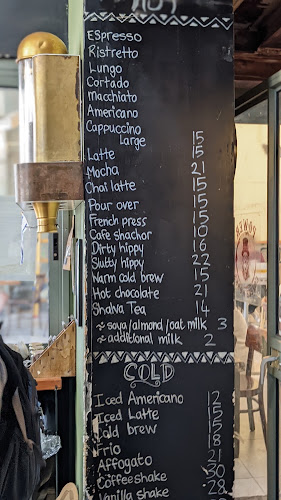 HOT
Espresso
Ristretto
Lungo
Cortado
Macchiato
Americano
Cappuccino
Large 15
Latte 15
Mocha 21
Chai latte 15
Pour over 15
French press 15
Cafe shachor 10
Dirty hippy 16
Slutty hippy 22
Warm cold brew 15
Hot chocolate 21
Shalva Tea 14
~ soya/almond/oat milk 3
~ additional milk 2
COLD
Iced Americano 12
Iced Latte 15
Cold brew 15
Frio 18
Affogato 21
Coffeeshake 30
Vanilla shake 28